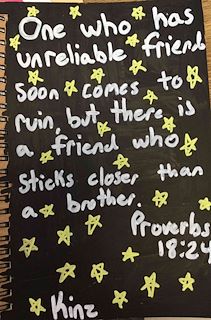 One who has
unreliable friend
soon comes to
ruin, but there is
a friend who
sticks closer than
a brother.
Proverbs
18:24
Kinz